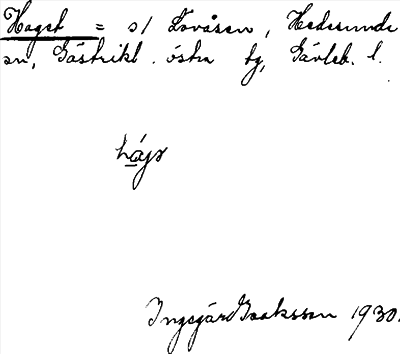 Haget = s/ Lövåsen, Hedesunda
sn, Gästrikl. östra tg, Gävleb. l.
hágɘ
Ingegärd Isaksson 1930.